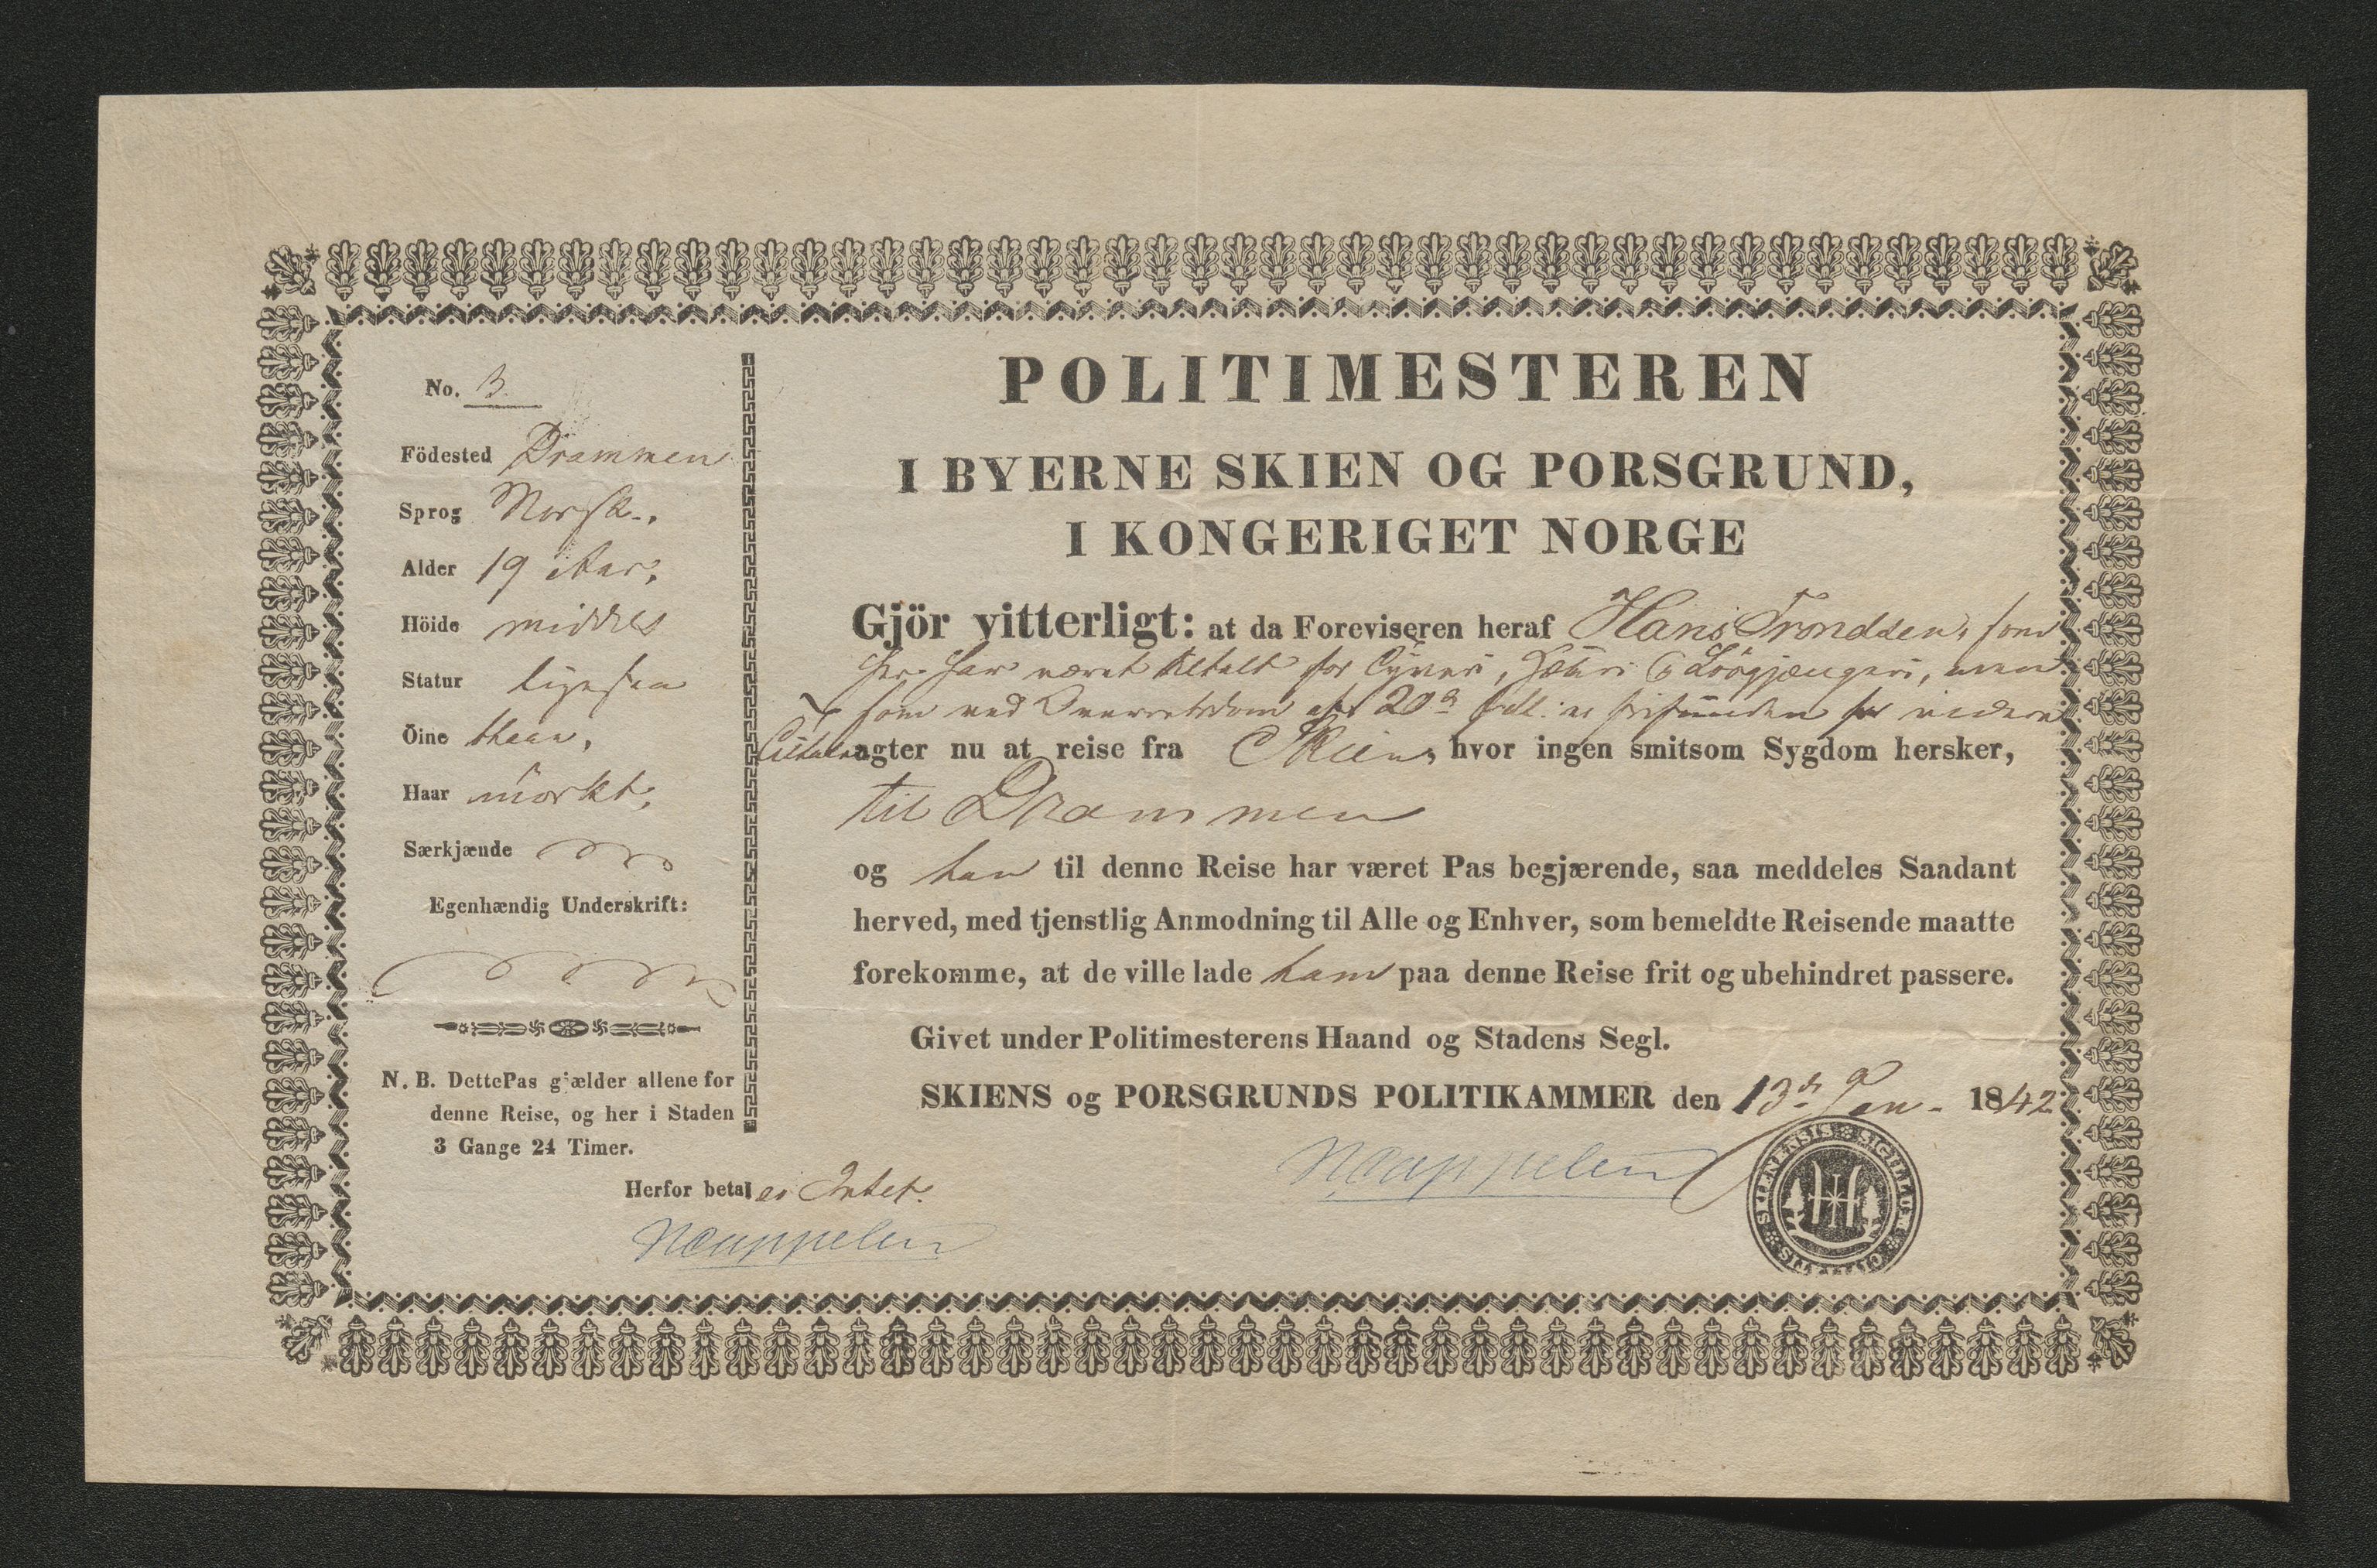 No. 3.
Födested Drammen
Sprog Norsk.
Alder 19 Aar.
Höide middels
Statur ligesaa
Öine blaae,
Haar mörkt.
Særkjænde
Egenhændig Underskrift:
N. B. Dette Pas gjælder allene for
denne Reise, og her i Staden
3 Gange 24 Timer.
Herfor betal es Intet.
POLITIMESTEREN
I BYERNE SKIEN OG PORSGRUND,
I KONGERIGET NORGE
Gjör vitterligt: at da Foreviseren heraf Hans Trondsen, som
her har været tiltalt for Tyveri, Hæleri & Lösgjængeri, men
som ved Overretsdom af 20de er frifunden for videre
Tiltale agter nu at reise fra Skien, hvor ingen smitsom Sygdom hersker,
til Drammen
og han til denne Reise har været Pas begjærende, saa meddeles Saadant
herved, med tjenstlig Anmodning til Alle og Enhver, som bemeldte Reisende maatte
forekomme, at de ville lade ham paa denne Reise frit og ubehindret passere.
Givet under Politimesterens Haand og Stadens Segl.
SKIENS og PORSGRUNDS POLITIKAMMER den 13de Jan. 1842
SIGILLUM CIVITATIS SKIENENSIS